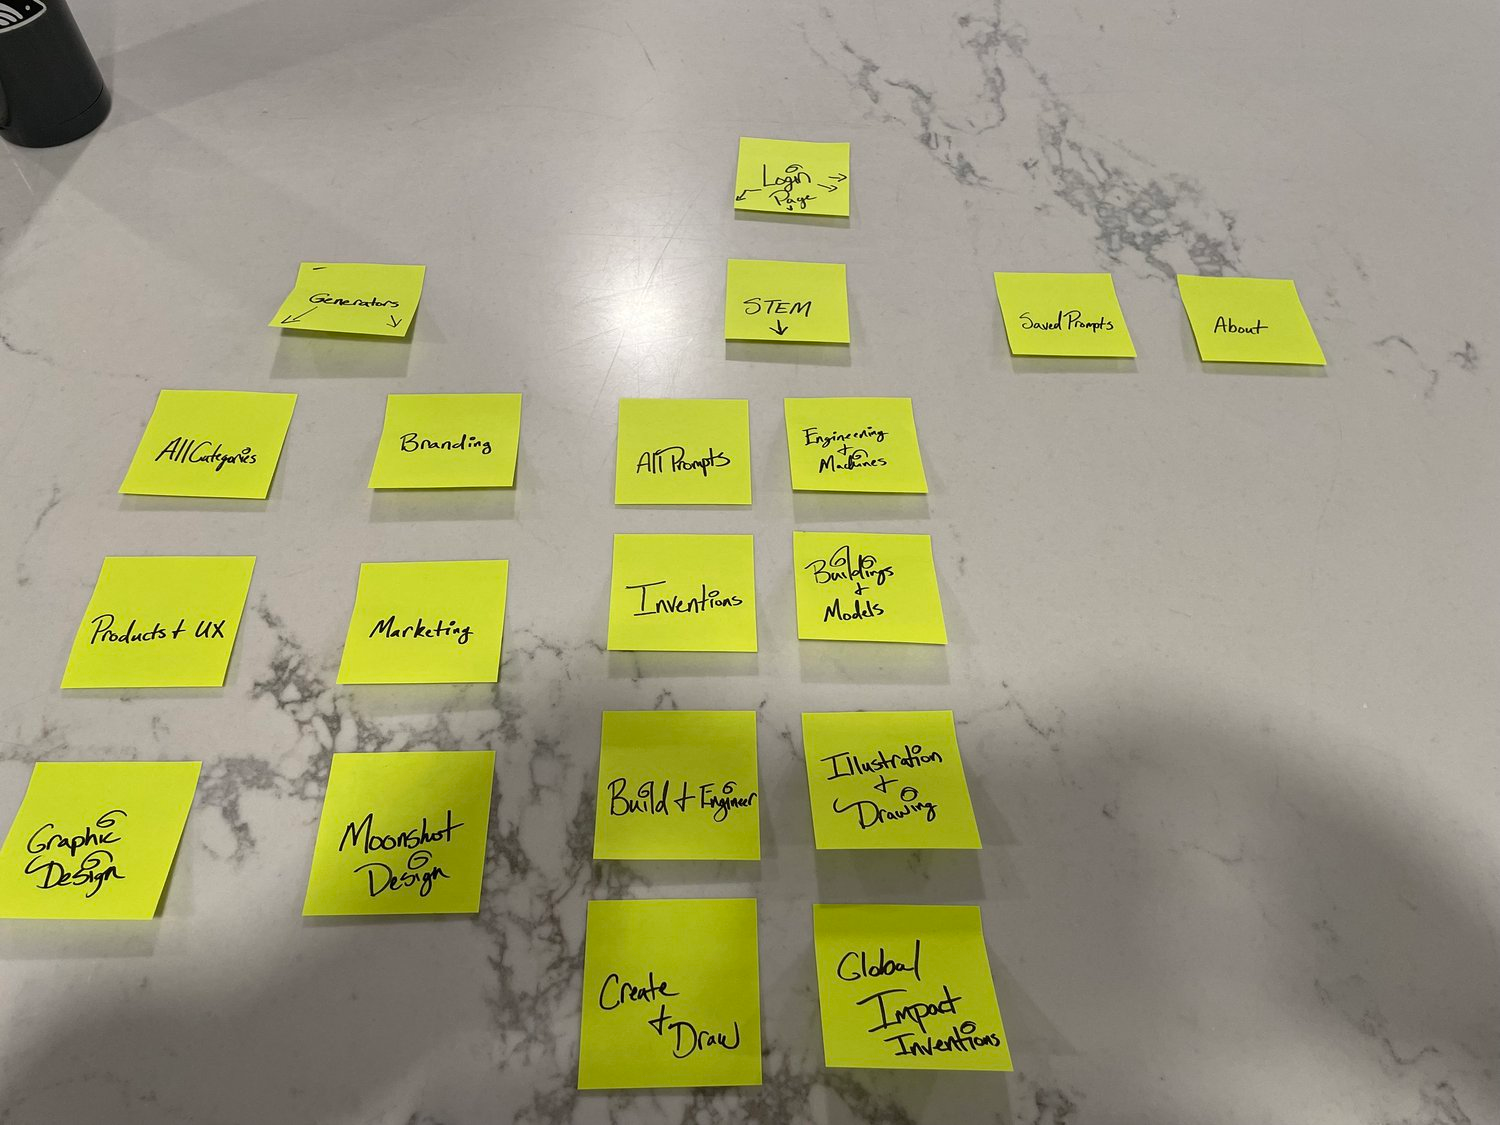 Login
Page
Generators
STEM
Saved Prompts
About
All Categories
Branding
All Prompts
Engineering
+
Machines
Products + UX
Marketing
Inventions
Buildings
+
Models
Graphic
Design
Moonshot
Design
Build + Engineer
Illustration
+
Drawing
Create
+
Draw
Global
Impact
Inventions